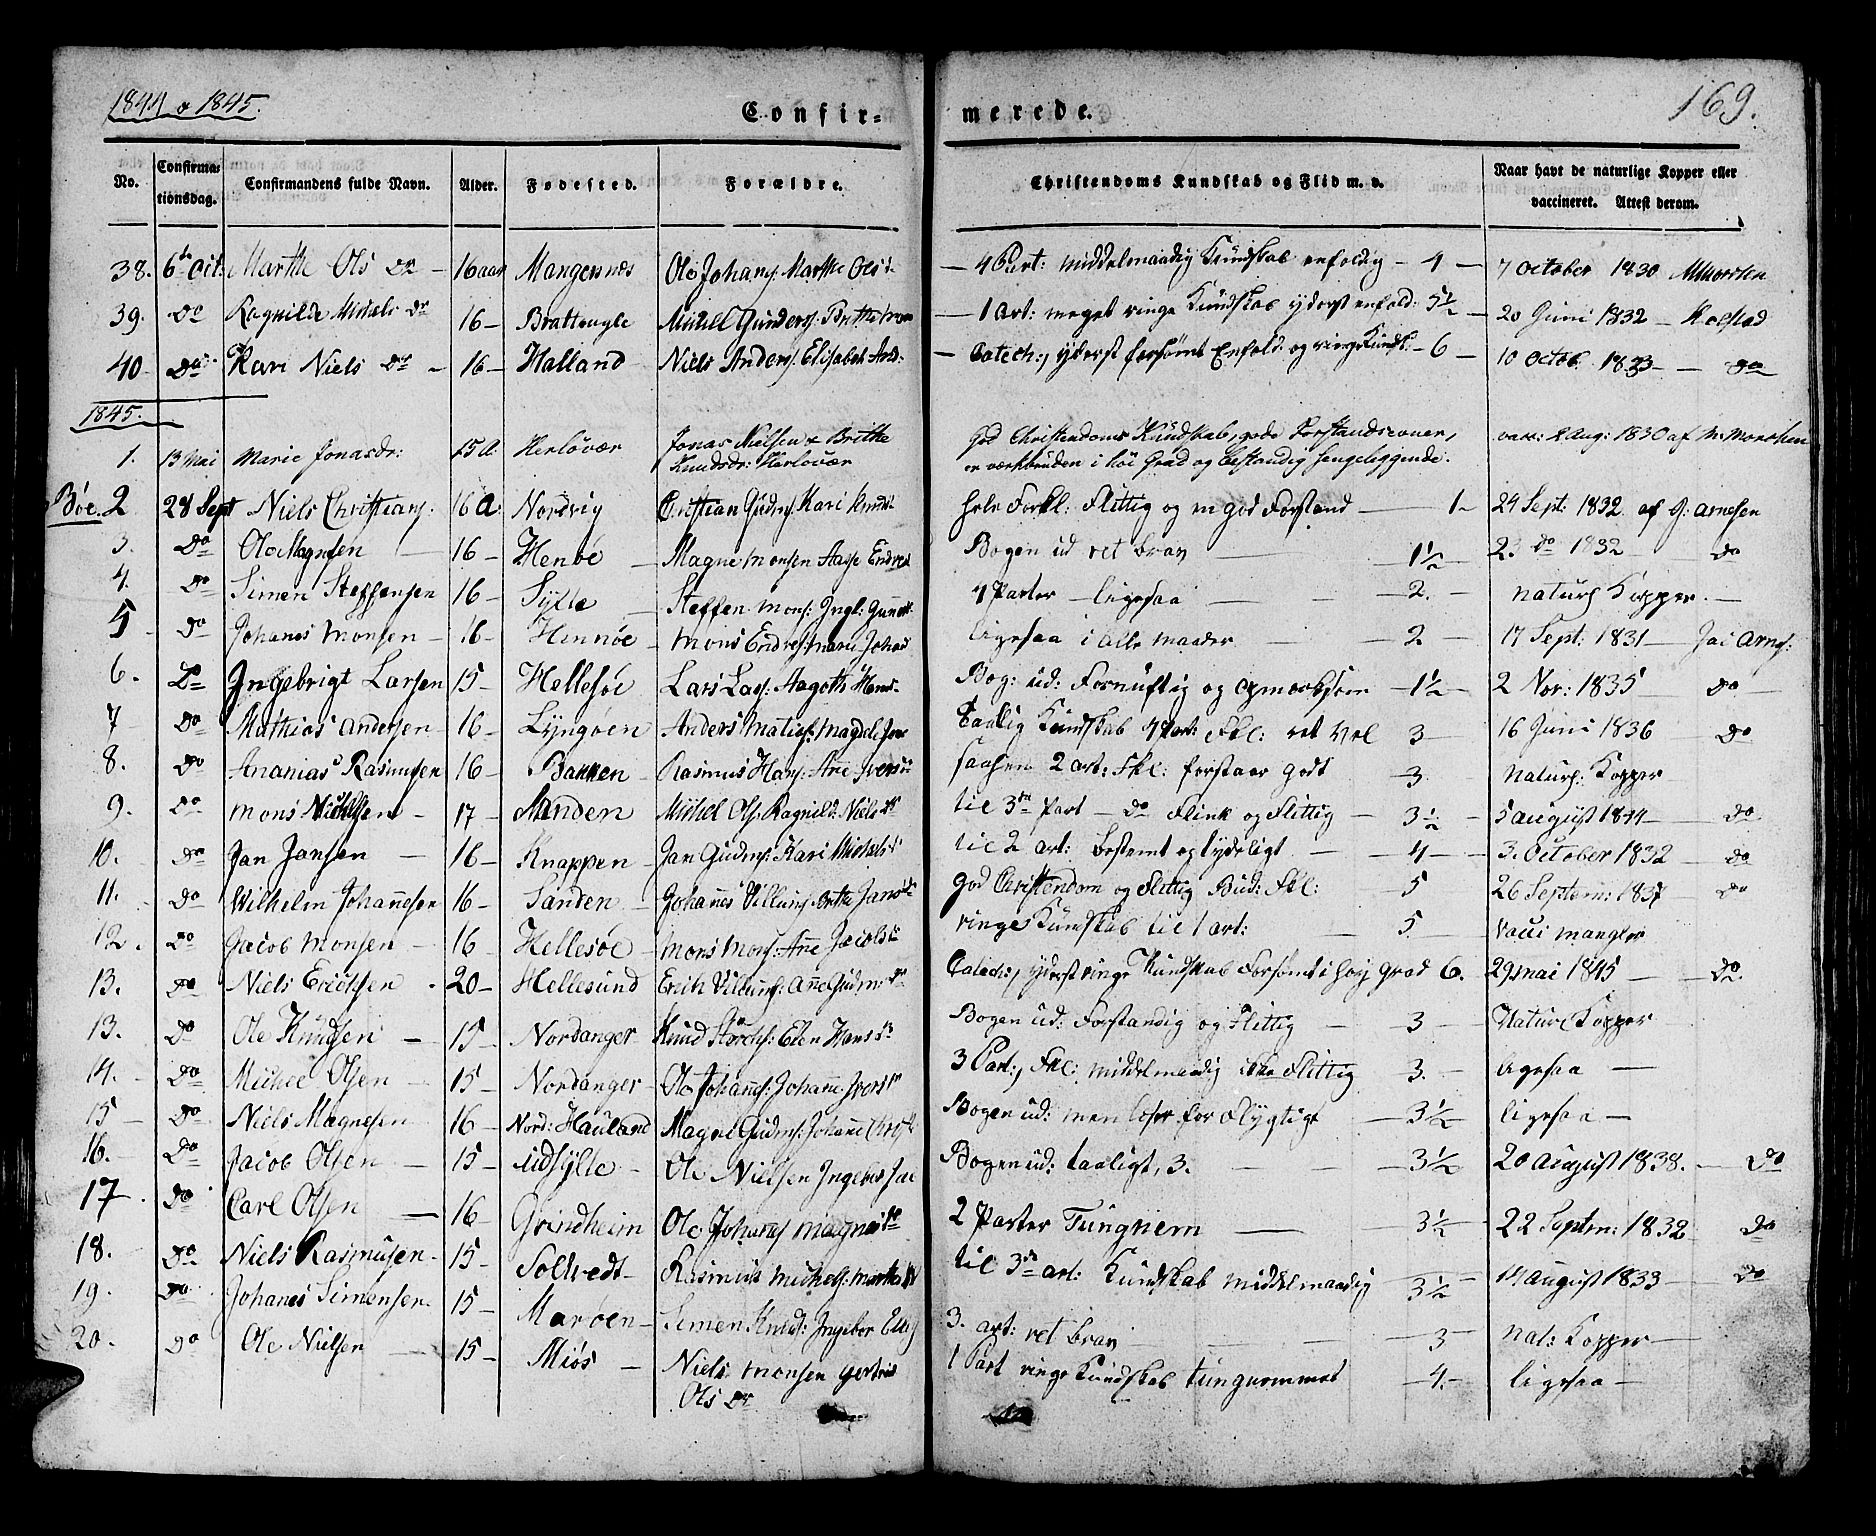 1844 & 1845.
Confir- merede.
169.
No. Confirma-tionsdag. Confirmandens fulde Navn. Alder. Fødested. Forældre. Christendoms Kundskab og Flid m. v. Naar havt de naturlige Kopper eller vaccineret. Attest derom.
38. 6te Oct. Marthe Ols Dr - 16 aar Mangersnæs Ole Johans: Marthe Olsdr - 4 Part: middelmaadig Kundskab enfoldig - 4 - 7 October 1830
39. Do Ragnilde Mikels Dr 16 - Bratteugle Mikel Gunders: Brithe - 1 Art: meget ringe Kundskab yderst enfold: 5½ - 20 Juni 1832 - Kolstad
40 - Do Kari Niels Dr - 16 - Halland Niels Anders: Elisabeth And: - Catech:, yderst forsømt Enfold: og ringe Kundsk: - 6 - 10 Octob. 1833 - Do
1845.
1. 13 Mai Marie Jonasdr: 15 A: Herløvær Jonas Nielsen & Brithe Knudsdr: Herlovær God Christendoms Kundskab, gode Forstandsevner, er værkbruden i høi Grad og bestandig sengeliggende. vacc: 2 Aug: 1830 af
Bøe. 2 28 Sept Niels Christians: 16 A: Nordvig Christian Gudms: Kari Knuds: hele Forkl: Flittig og m god Forstand - 1 - 24 Sept: 1832 af J: Arnesen
3. Do Ole Magnesen 16 - Henøe - Magne Monsen Aasse Endres Bogen ud ret brav - 1½ - 23 do 1832 - Do
4. Do Simen Steffensen 16 - Sylte - Steffen Mons: Ingl: 4 Parter - ligesaa - 2. - naturl Kopper. -
5 - Do Johanes Monsen - 16 - Hennøe - Mons Endres: Mari Johas ligesaa i alle maader - 2 - 17 Sept: 1831 - Jac Arnes:
6. Do Ingebrigt Larsen 15 - Hellesøe - Lars Lars: Aagothe Hans: Bog: ud: Fornuftig og opmærksom - 1½ - 2 Nov: 1835 - Do
7 Do Mathias Andersen - 16 - Lyngøen Anders Matias: Magdele Taalig Kundskab 4 Part: Fkl: ret vel 3 - 16 Juni 1836 Do
8. Do Ananias Rasmusen 16 - Bakken - Rasmus Hans: Ane Iversdr saasen 2 art: Fkl: forstaar godt - 3 naturl: Kopper
9. Do Mons Nielssen - 17 - Sanden Mikel Ols: Ragnild: Nielsdr til 3die Part - do Flink og Flittig - 3½ - 5 august 1844 - Do
10. Do Jan Jansen - 16 - Knappen - Jan Gudms: Kari Mikelsdr til 2 art: bestemt og tydeligt - 4 - 3. October 1832 - Do
11. - Do Wilhelm Johannesen 16 - Sanden - Johannes Villums: Brithe Jansdr God Christendom og Flittig Bud: Fkl: - 5 26 Septem: 1837 - Do
12. Do Jacob Monsen - 16 - Hellesøe - Mons Mons: Ane Jacobsdr ringe Kundskab til 1 art: - 5. - Vacci mangler
13. Do Niels Erichsen - 20 - Hellesund Erich Villums: Ane Gudm: dr Catech:, yderst ringe Kundskab Forsømt i høj grad 6. - 29 mai 1845 - Do
13. Do Ole Knudsen - 15 - Nordanger Knud Størchs: Elen Hansdr Bogen ud: Forstandig og Flittig - 3 - Naturl Kopper
14. - Do Michel Olsen - 15 - Nordanger - Ole Johannes: Johanne Iversdr 3 Part:, Fkl: middelmaadig ikke Flittig - 3. - ligesaa -
15 - Do Niels Magnesen 16 - Nord: Hauland Magne Gudms: Johanne Christ Bogen ud: men løser for Flygtigt - 3½ - ligesaa -
16. - Do Jacob Olsen - 15 - Udsylte - Ole Nielsen Bogen ud: taaligt, 3. - 3½ - 20 august 1838. - Do
17 - Do Carl Olsen - 16 - Grindheim Ole Johans 2 Parter Tungnem - 3½ - 22 Septem: 1832 - Do
18. Do Niels Rasmusen - 15 - Soltvedt - Rasmus Michels: Marthe til 3die art: Kundskab middelmaadig 3½ - 14 august 1833 - Do
19. Do Johanes Simensen - 15 - Marøen - Simen Knuds: Ingebor 3. art: ret brav - 3 - nat: Kopper -
20. Do Ole Nielsen - 15 - Miøs - Niels Monsen Gertrud Ols Dr 1 Part ringe Kundskab tungnemmet - 4. - ligesaa -